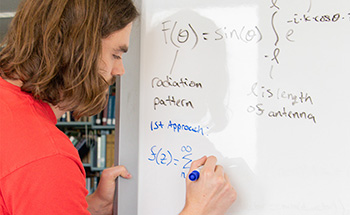 F(θ) = sin(θ) ∫_{-l}^{l} e^{-i·k·cosθ·
radiation
pattern
l is length
of antenna
1st Approach:
f(z) = ∑^∞_n